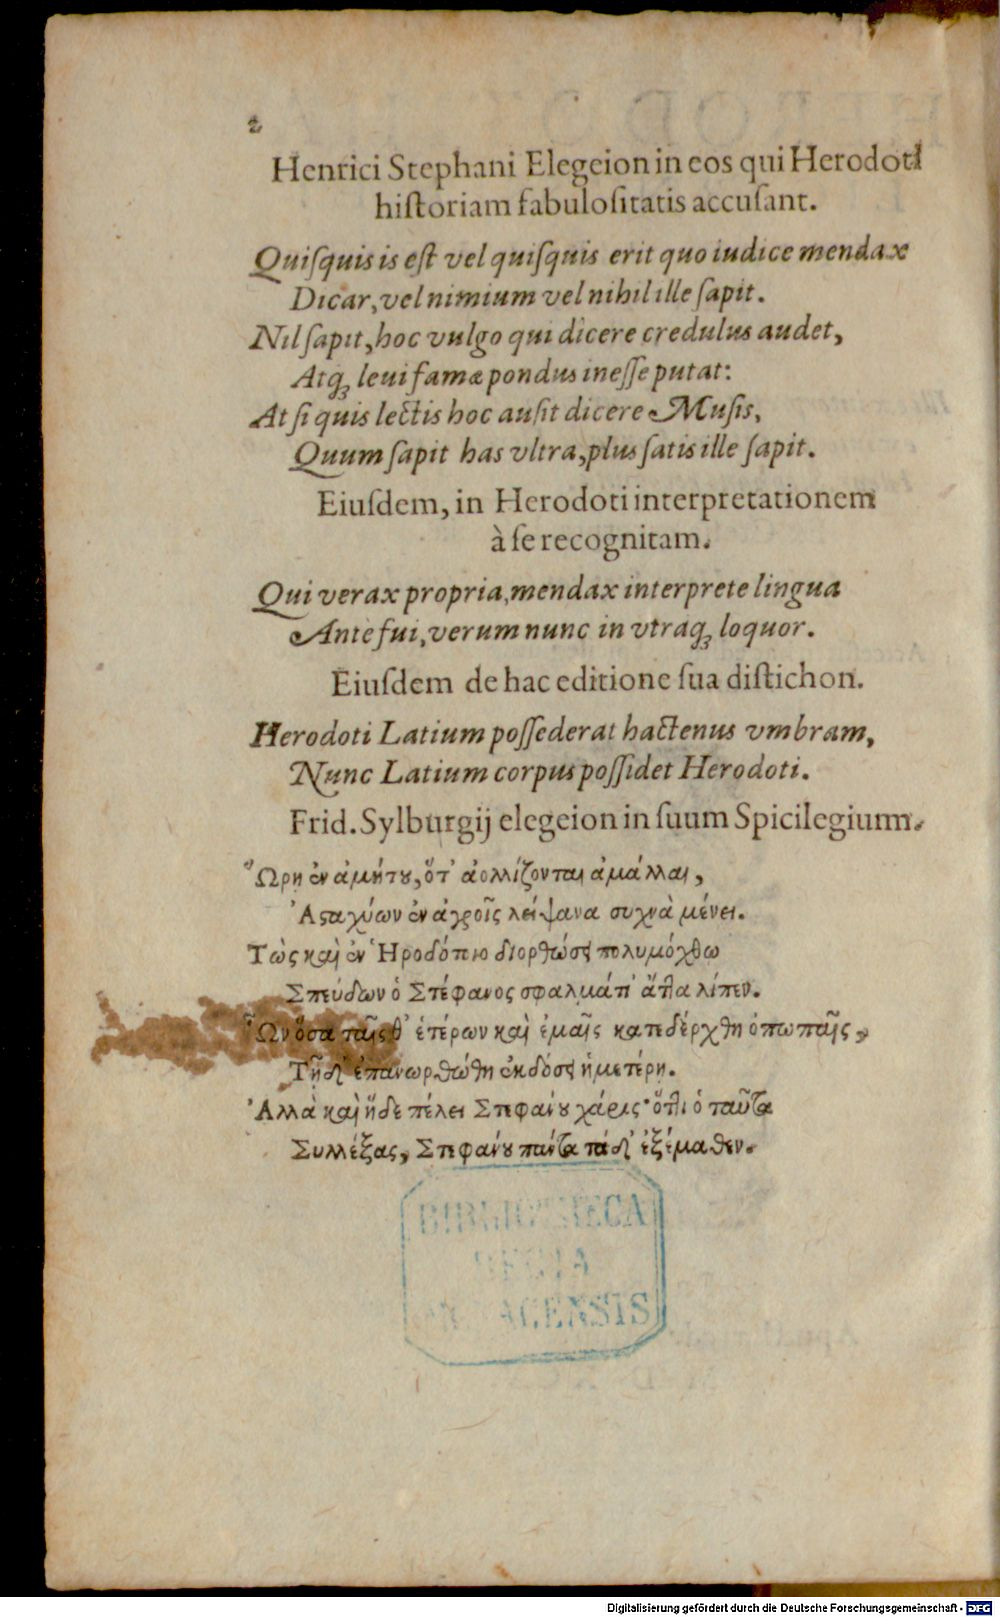 2
Henrici Stephani Elegeion in eos qui Herodoti
hiſtoriam fabuloſitatis accuſant.
Quiſquis is eſt vel quiſquis erit quo iudice mendax
Dicar, vel nimium vel nihil ille ſapit.
Nil ſapit, hoc vulgo qui dicere credulus audet,
Atq; leui famæ pondus ineſſe putat:
At ſi quis lectis hoc auſit dicere Muſis,
Quum ſapit has vltra, plus ſatis ille ſapit.
Eiuſdem, in Herodoti interpretationem
à ſe recognitam.
Qui verax propria, mendax interprete lingua
Ante fui, verum nunc in vtraq; loquor.
Eiuſdem de hac editione ſua diſtichon.
Herodoti Latium poſſederat hactenus vmbram,
Nunc Latium corpus poſſidet Herodoti.
Frid. Sylburgij elegeion in ſuum Spicilegium.
Ὥρῃ ἐν ἀμήτου, ὅτ' ἀολλίζονται ἀμάλλαι,
Ἀσταχύων ἐν ἀγροῖς λείψανα συχνὰ μένει.
Τὼς καὶ ἐν Ἡροδότοιο διορθώσει πολυμόχθῳ
Σπεύδων ὁ Στέφανος σφάλματ' ἄττα λίπεν.
Ὧν ὅσα ταῖς θ' ἑτέρων καὶ ἐμαῖς κατεδέρχθη ὀπωπαῖς,
Τῇδ' ἐπανωρθώθη ἐκδόσει ἡμετέρῃ.
Ἀλλὰ καὶ ἥδε πέλει Στεφάνου χάρις· ὅττι ὁ ταῦτα
Συλλέξας, Στεφάνου πάντα τάδ' ἐξέμαθεν.
BIBLIOTHECA
REGIA
MONACENSIS
Digitalisierung gefördert durch die Deutsche Forschungsgemeinschaft - DFG